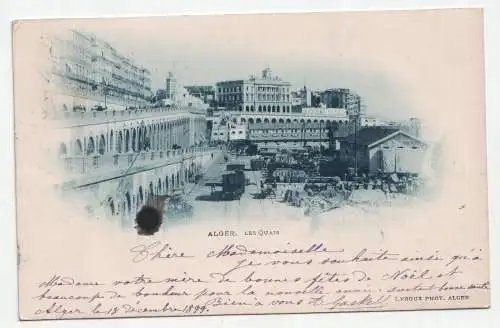 ALGER. LES QUAIS
Chère Mademoiselle
Je vous souhaite ainsi qu'à
Madame votre mère de bonnes fêtes de Noël et
beaucoup de bonheur pour la nouvelle année, surtout bonne santé
Bien à vous
Alger le 18 Décembre 1899.
LEROUX PHOT. ALGER